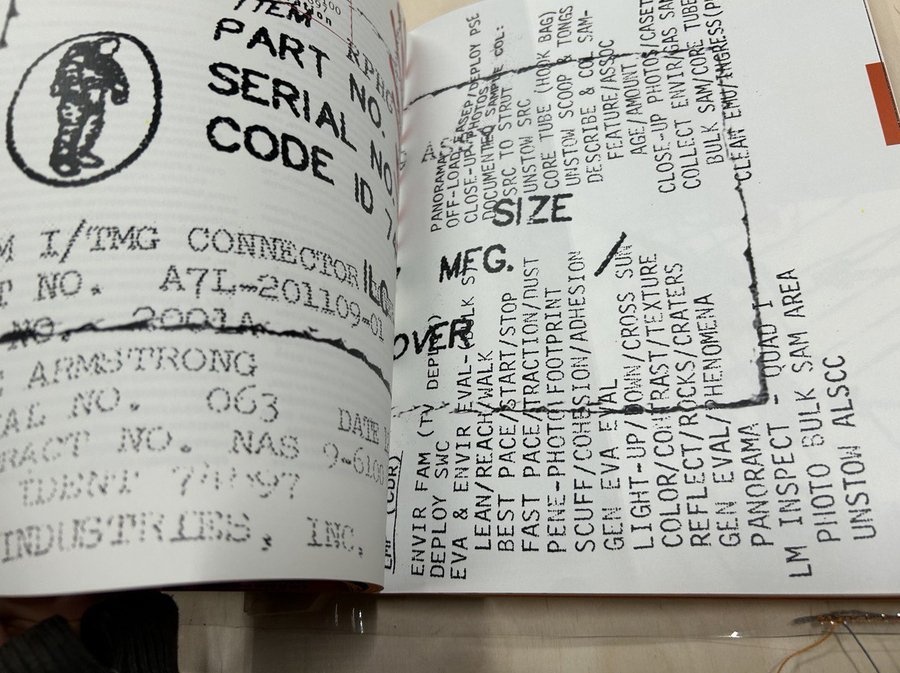 ITEM
PART NO.
SERIAL NO.
CODE ID
I/TMG CONNECTOR
NO. A7L-201109-01
NO. 2001A
ARMSTRONG
NO. 063
DATE
NO. NAS 9-6100
IDENT
INDUSTRIES, INC.
SIZE
MFG.
OVER
PANORAMA
CLOSE-UP PHOTOS
SRC TO STRUT
UNSTOW SRC
CORE TUBE (HOOK BAG)
UNSTOW SCOOP & TONGS
DESCRIBE & COL SAM-
FEATURE/ASSOC
AGE/AMOUNT
CLOSE-UP PHOTOS/CASET
COLLECT ENVIR/GAS SAM
BULK SAM/CORE TUBE
CLEAN EMU/INGRESS
(CDR)
ENVIR FAM (TV DEPLOY)
DEPLOY SWC
EVA & ENVIR EVAL-BULK
LEAN/REACH/WALK
BEST PACE/START/STOP
FAST PACE/TRACTION/DUST
PENE-PHOTO FOOTPRINT
SCUFF/COHESION/ADHESION
GEN EVA EVAL
LIGHT-UP/DOWN/CROSS SUN
COLOR/CONTRAST/TEXTURE
REFLECT/ROCKS/CRATERS
GEN EVAL/PHENOMENA
PANORAMA - QUAD I
LM INSPECT
PHOTO BULK SAM AREA
UNSTOW ALSCC